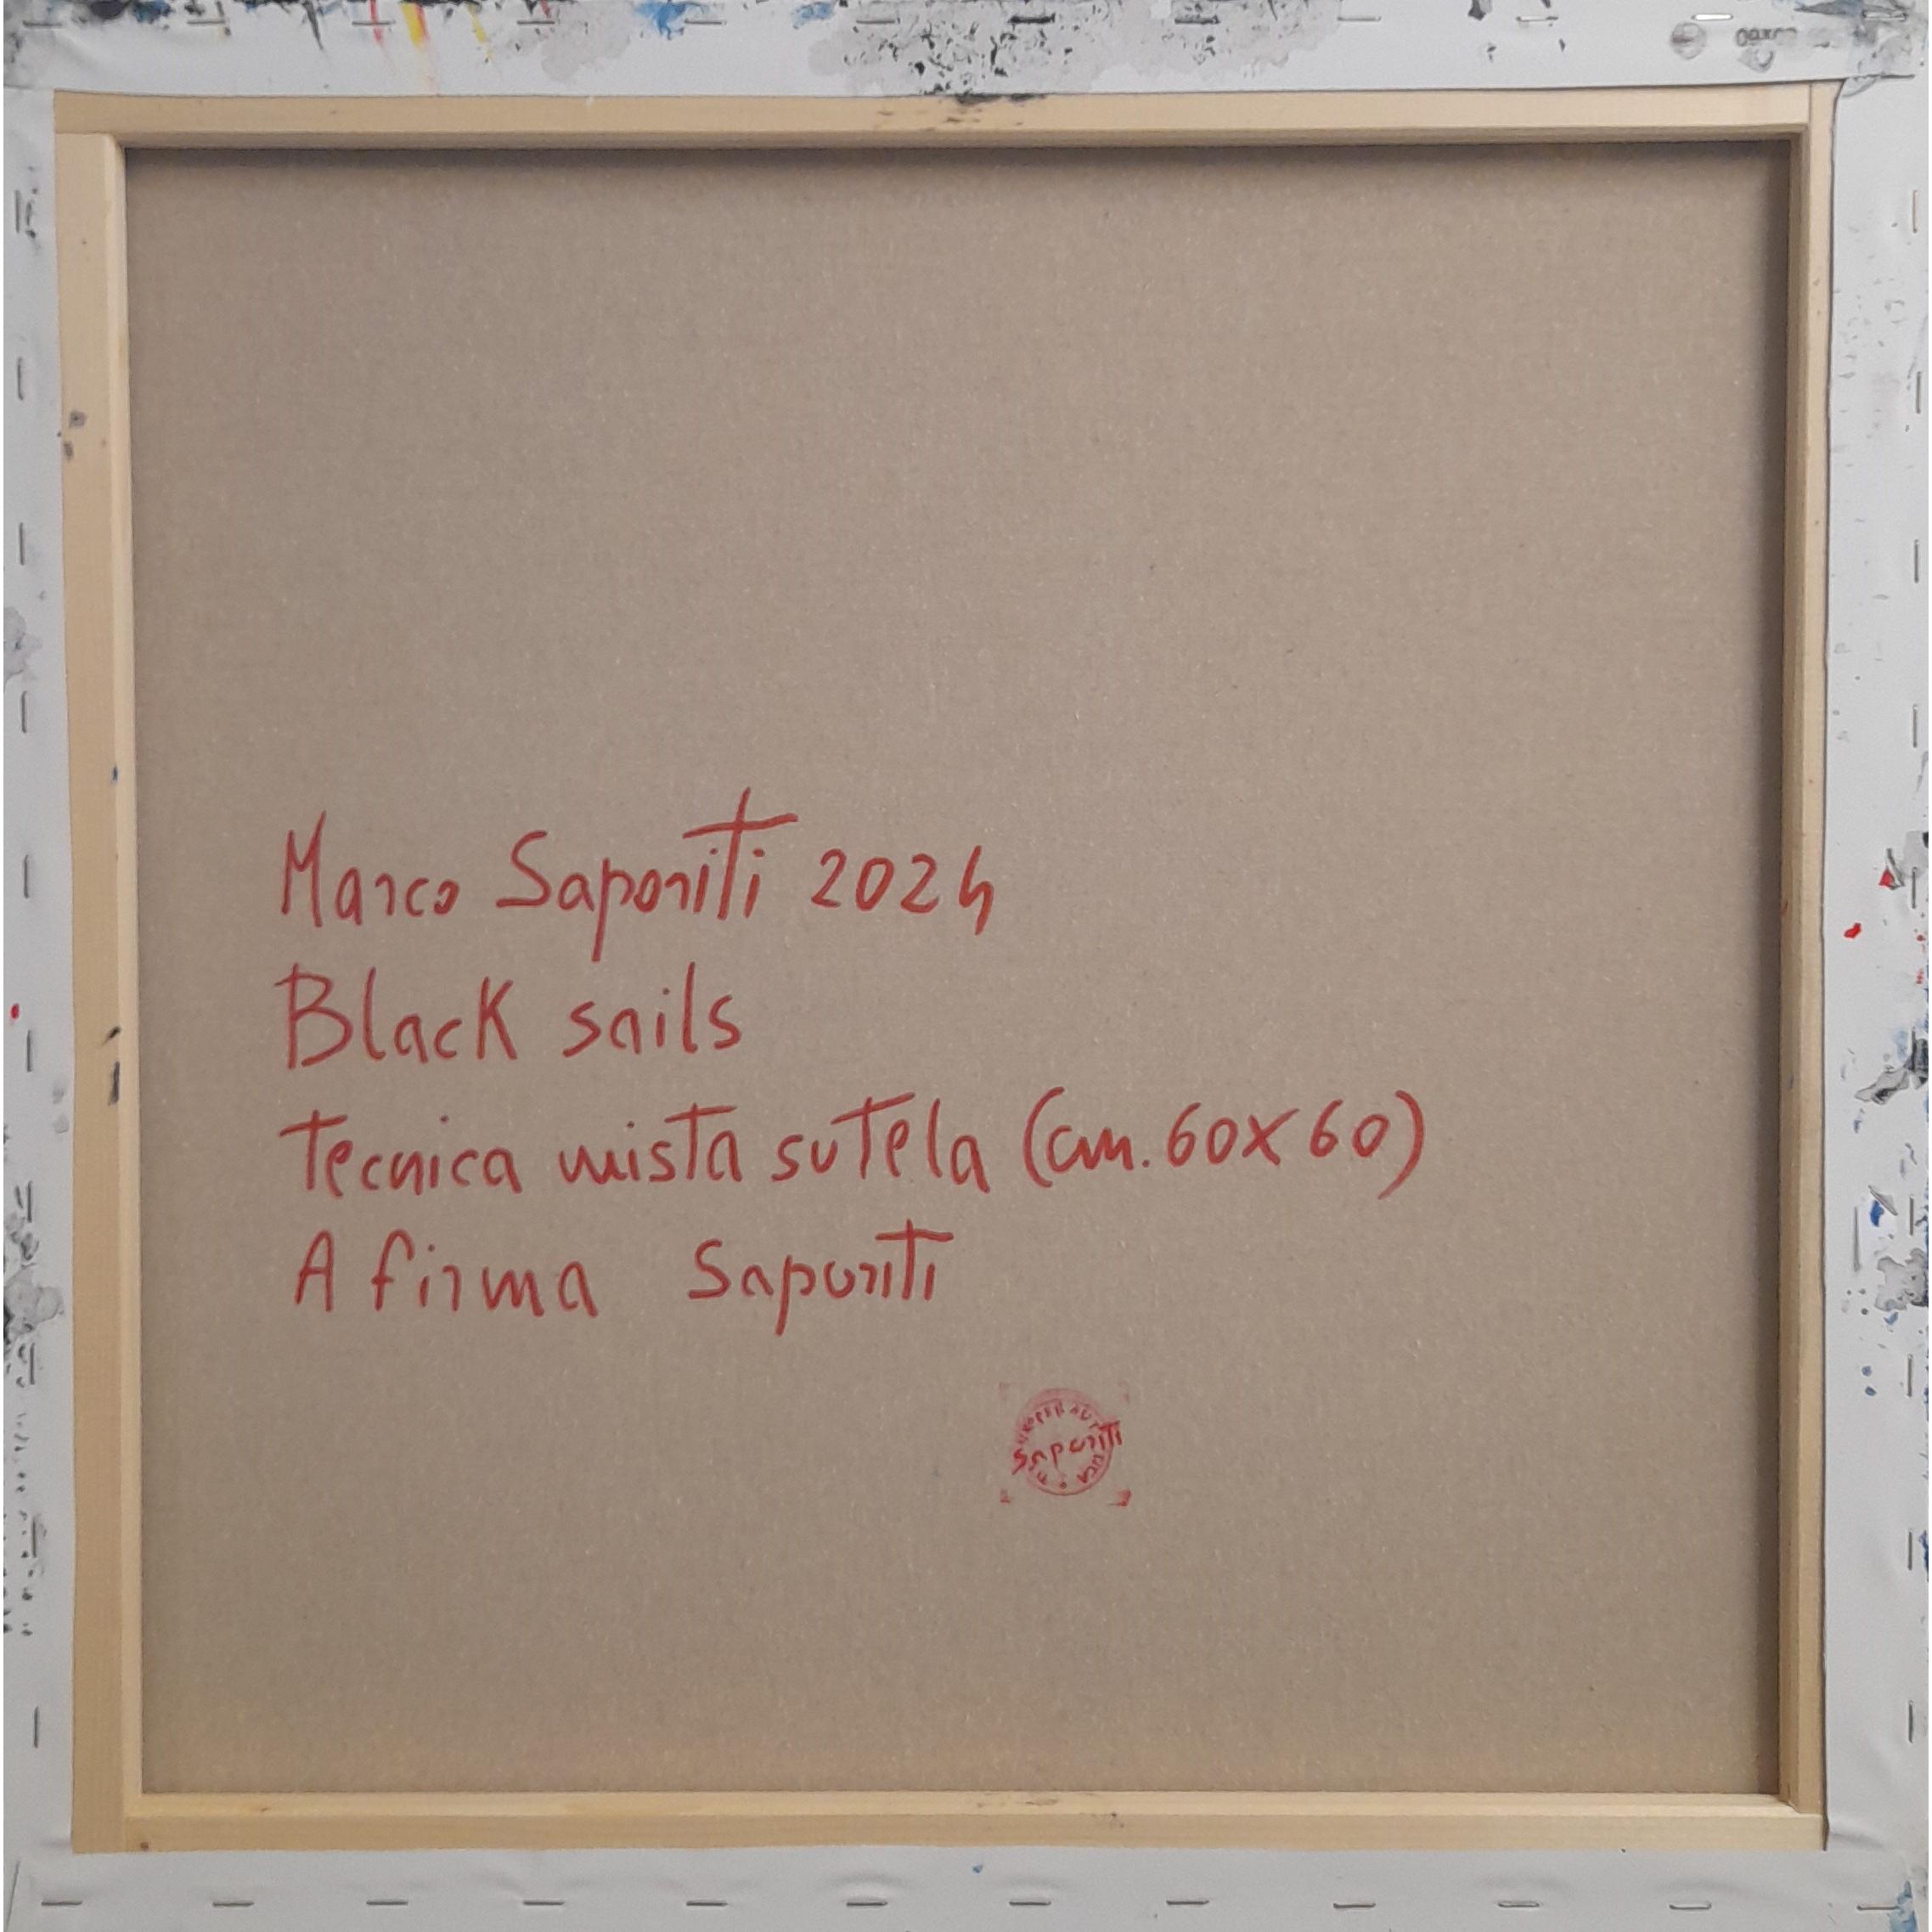 Marco Saporiti 2024
Black sails
Tecnica mista su tela (cm. 60x60)
A firma Saporiti
Saporiti